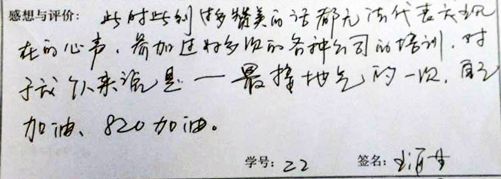 感想与评价：此时此刻过多赞美的话都无法代表我现
在的心声，参加过好多次的各种公司的培训，对
于我们来说是一最接地气的一次，
加油、820加油。
学号：22 签名：